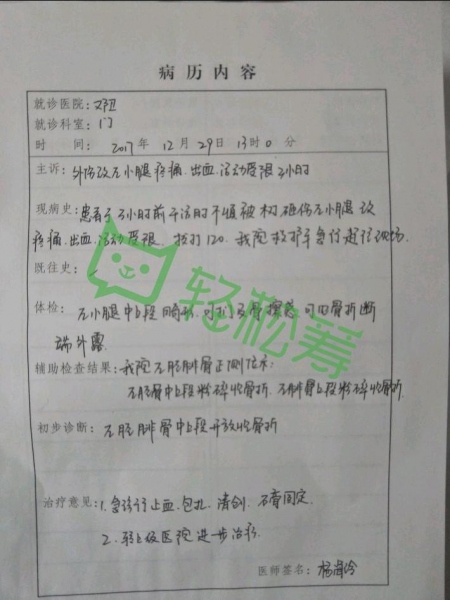 病历内容
就诊医院:
就诊科室:门
时 间: 2017年 12月29日 13时0分
主诉:外伤致左小腿疼痛、出血、活动受限2小时
现病史:患者于2小时前干活时不慎被树砸伤左小腿致
疼痛、出血、活动受限、拨打120、我院救护车急行赶往现场.
既往史:
体检:左小腿中上段畸形、可扪及骨擦感、可见骨折断
端外露.
辅助检查结果:我院左胫腓骨正侧位示:
左胫骨中上段粉碎性骨折、左腓骨上段粉碎性骨折.
初步诊断:左胫腓骨中上段开放性骨折
治疗意见:1.急诊行止血、包扎、清创、石膏固定.
2.转上级医院进步治疗.
医师签名:
轻松筹